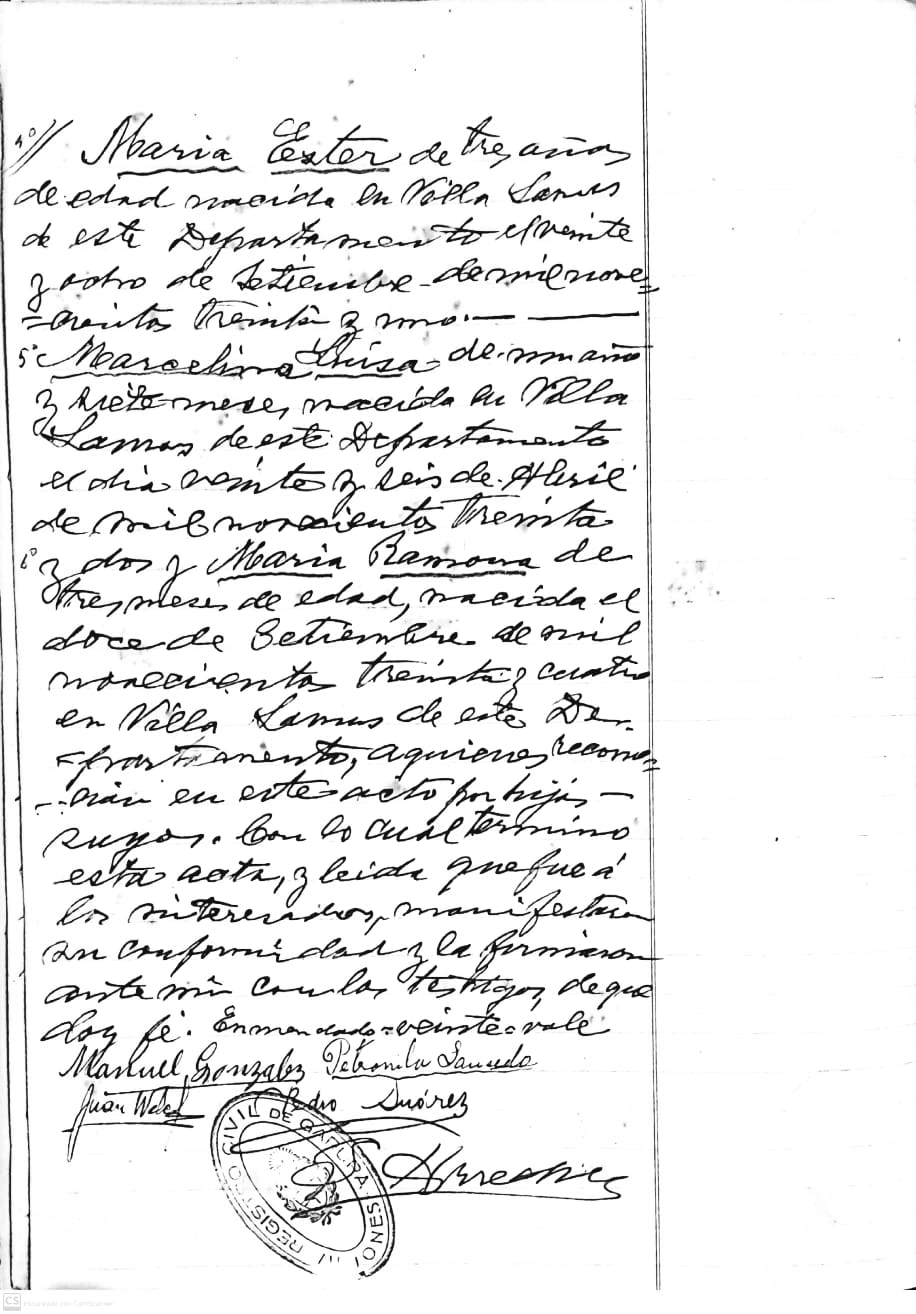 4º// Maria Ester de tres años
de edad nacida en Villa Lanus
de este Departamento el veinte
y ocho de Setiembre de mil nove=
=cientos treinta y uno.—
5º Marcelina Luisa de un año
y siete meses, nacida en Villa
Lanus de este Departamento
el dia veinte y seis de Abril
de mil novecientos treinta
6º y dos y Maria Ramona de
tres meses de edad, nacida el
doce de Setiembre de mil
novecientos treinta y cuatro
en Villa Lanus de este De=
=partamento, a quienes recono=
=cian en este acto por hijos —
suyos. Con lo cual termino
esta acta, y leida que fue á
los interesados, manifestaron
su conformidad y la firmaron
ante mi con los testigos, de que
doy fé. Enmendado=veinte=vale
Manuel Gonzalez Petronila
Juan Pedro Suárez
REGISTRO CIVIL DE
CS